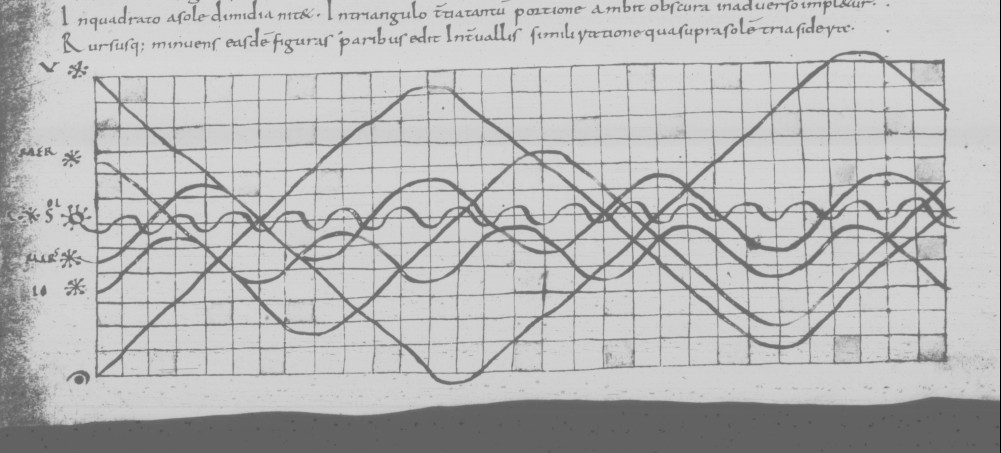 In quadrato a sole dimidia nit&. In triangulo tiatantū portione ambit obscura in adverso impl&ur.
Rursusq; minuens easdē figuras paribus edit Intuallis simili ratione qua supra solē tria sidera.
V
MER
SOL
MARS
IO